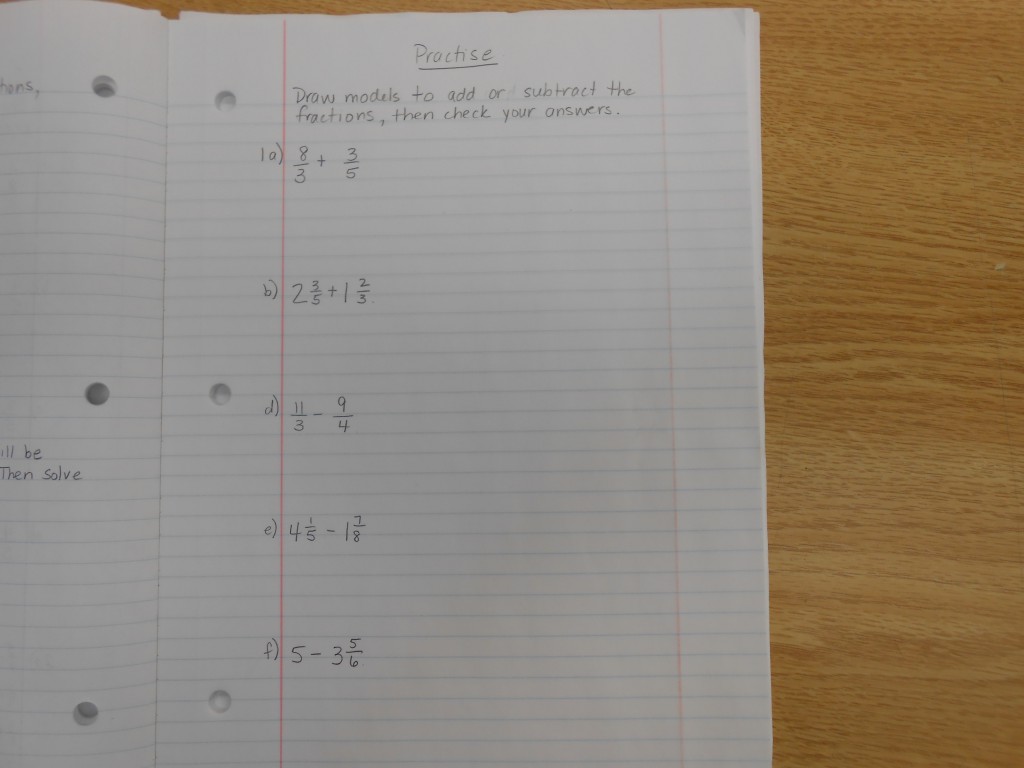 Practise
tions,
Draw models to add or subtract the
fractions, then check your answers.
1a) 8/3 + 3/5
b) 2 3/5 + 1 2/3
d) 11/3 - 9/4
ill be
Then solve
e) 4 1/5 - 1 7/8
f) 5 - 3 5/6